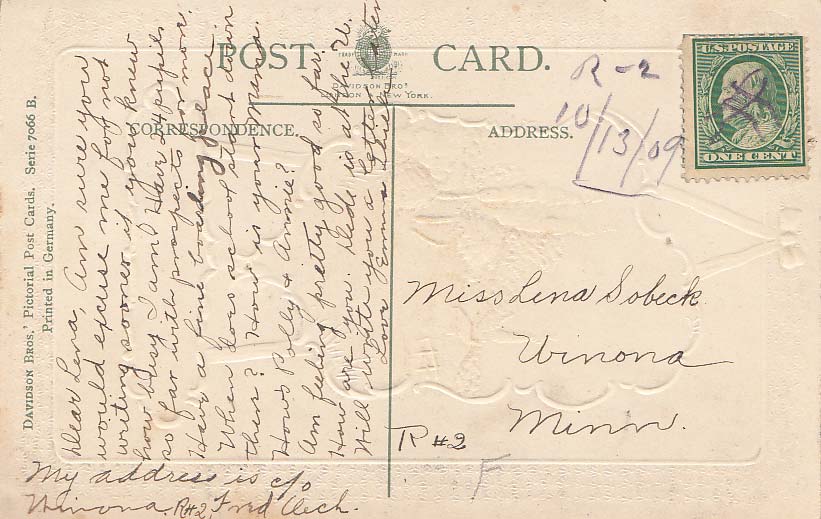 POST CARD.
TRADE MARK
DAVIDSON BROS
LONDON & NEW YORK.
CORRESPONDENCE.
ADDRESS.
U.S. POSTAGE
ONE CENT
R-2
10/13/09
DAVIDSON BROS.' Pictorial Post Cards. Serie 7066 B.
Printed in Germany.
Dear Lena, Am sure you
would excuse me for not
writing sooner if you knew
how busy I am. Have 24 pupils
so far with prospects for more.
Have a fine boarding place.
When does school start down
there? How is your Mama.
Hows Polly & Annie?
Am feeling pretty good so far.
How are you. Ride is at the U.
Will write you a letter later
Love Emma
Miss Lena Sobeck
Winona
Minn.
R#2
F
My address is c/o
Winona. R#2, Fred